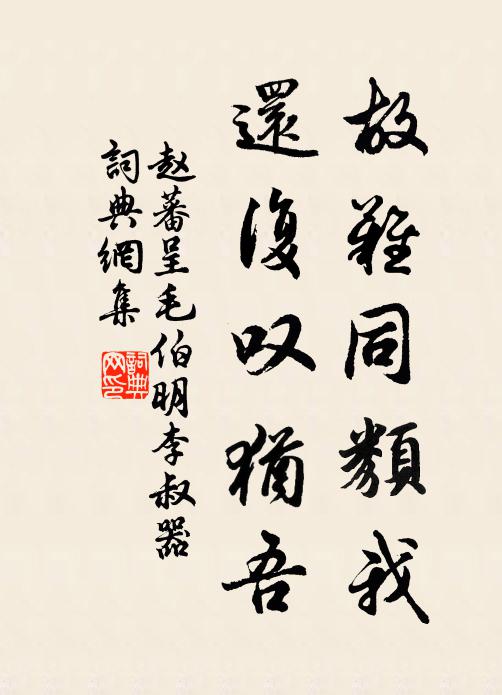 故難同類我
還復叹猶吾
赵蕃呈毛伯明李叔器
詞典網集
詞典
网印